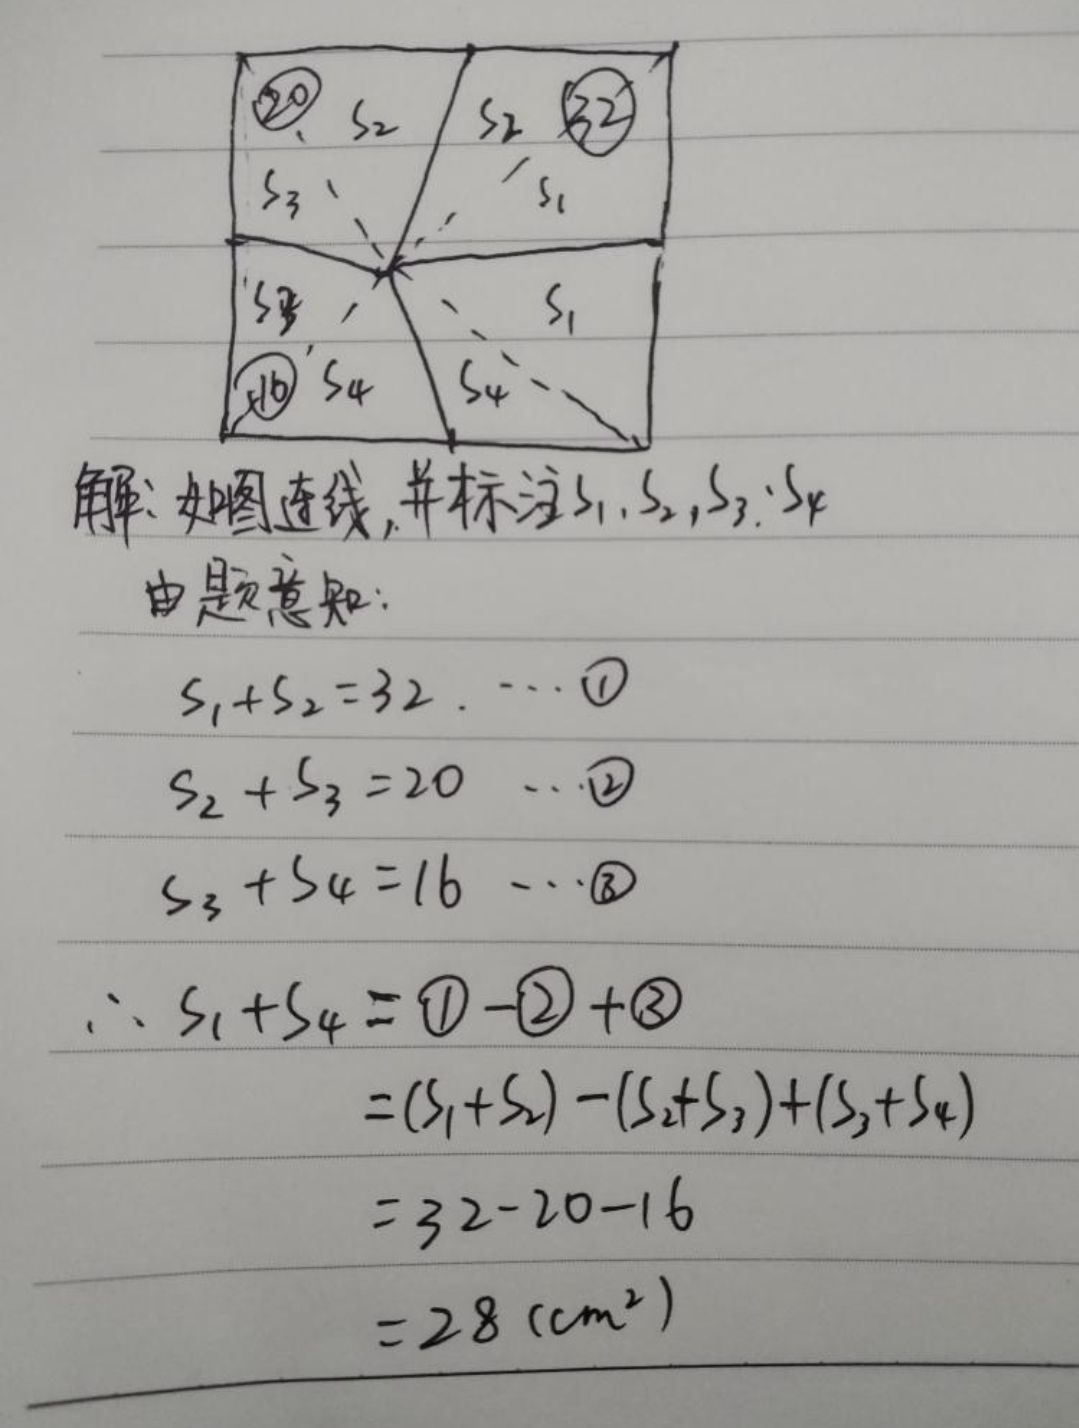 20 S₂ S₂ 32
S₃ S₁
S₃ S₁
16 S₄ S₄
解: 如图连线, 并标注S₁、S₂, S₃. S₄
由题意知:
S₁+S₂=32. …①
S₂+S₃=20 …②
S₃+S₄=16 …③
∴ S₁+S₄=①-②+③
=(S₁+S₂)-(S₂+S₃)+(S₃+S₄)
=32-20-16
=28(cm²)